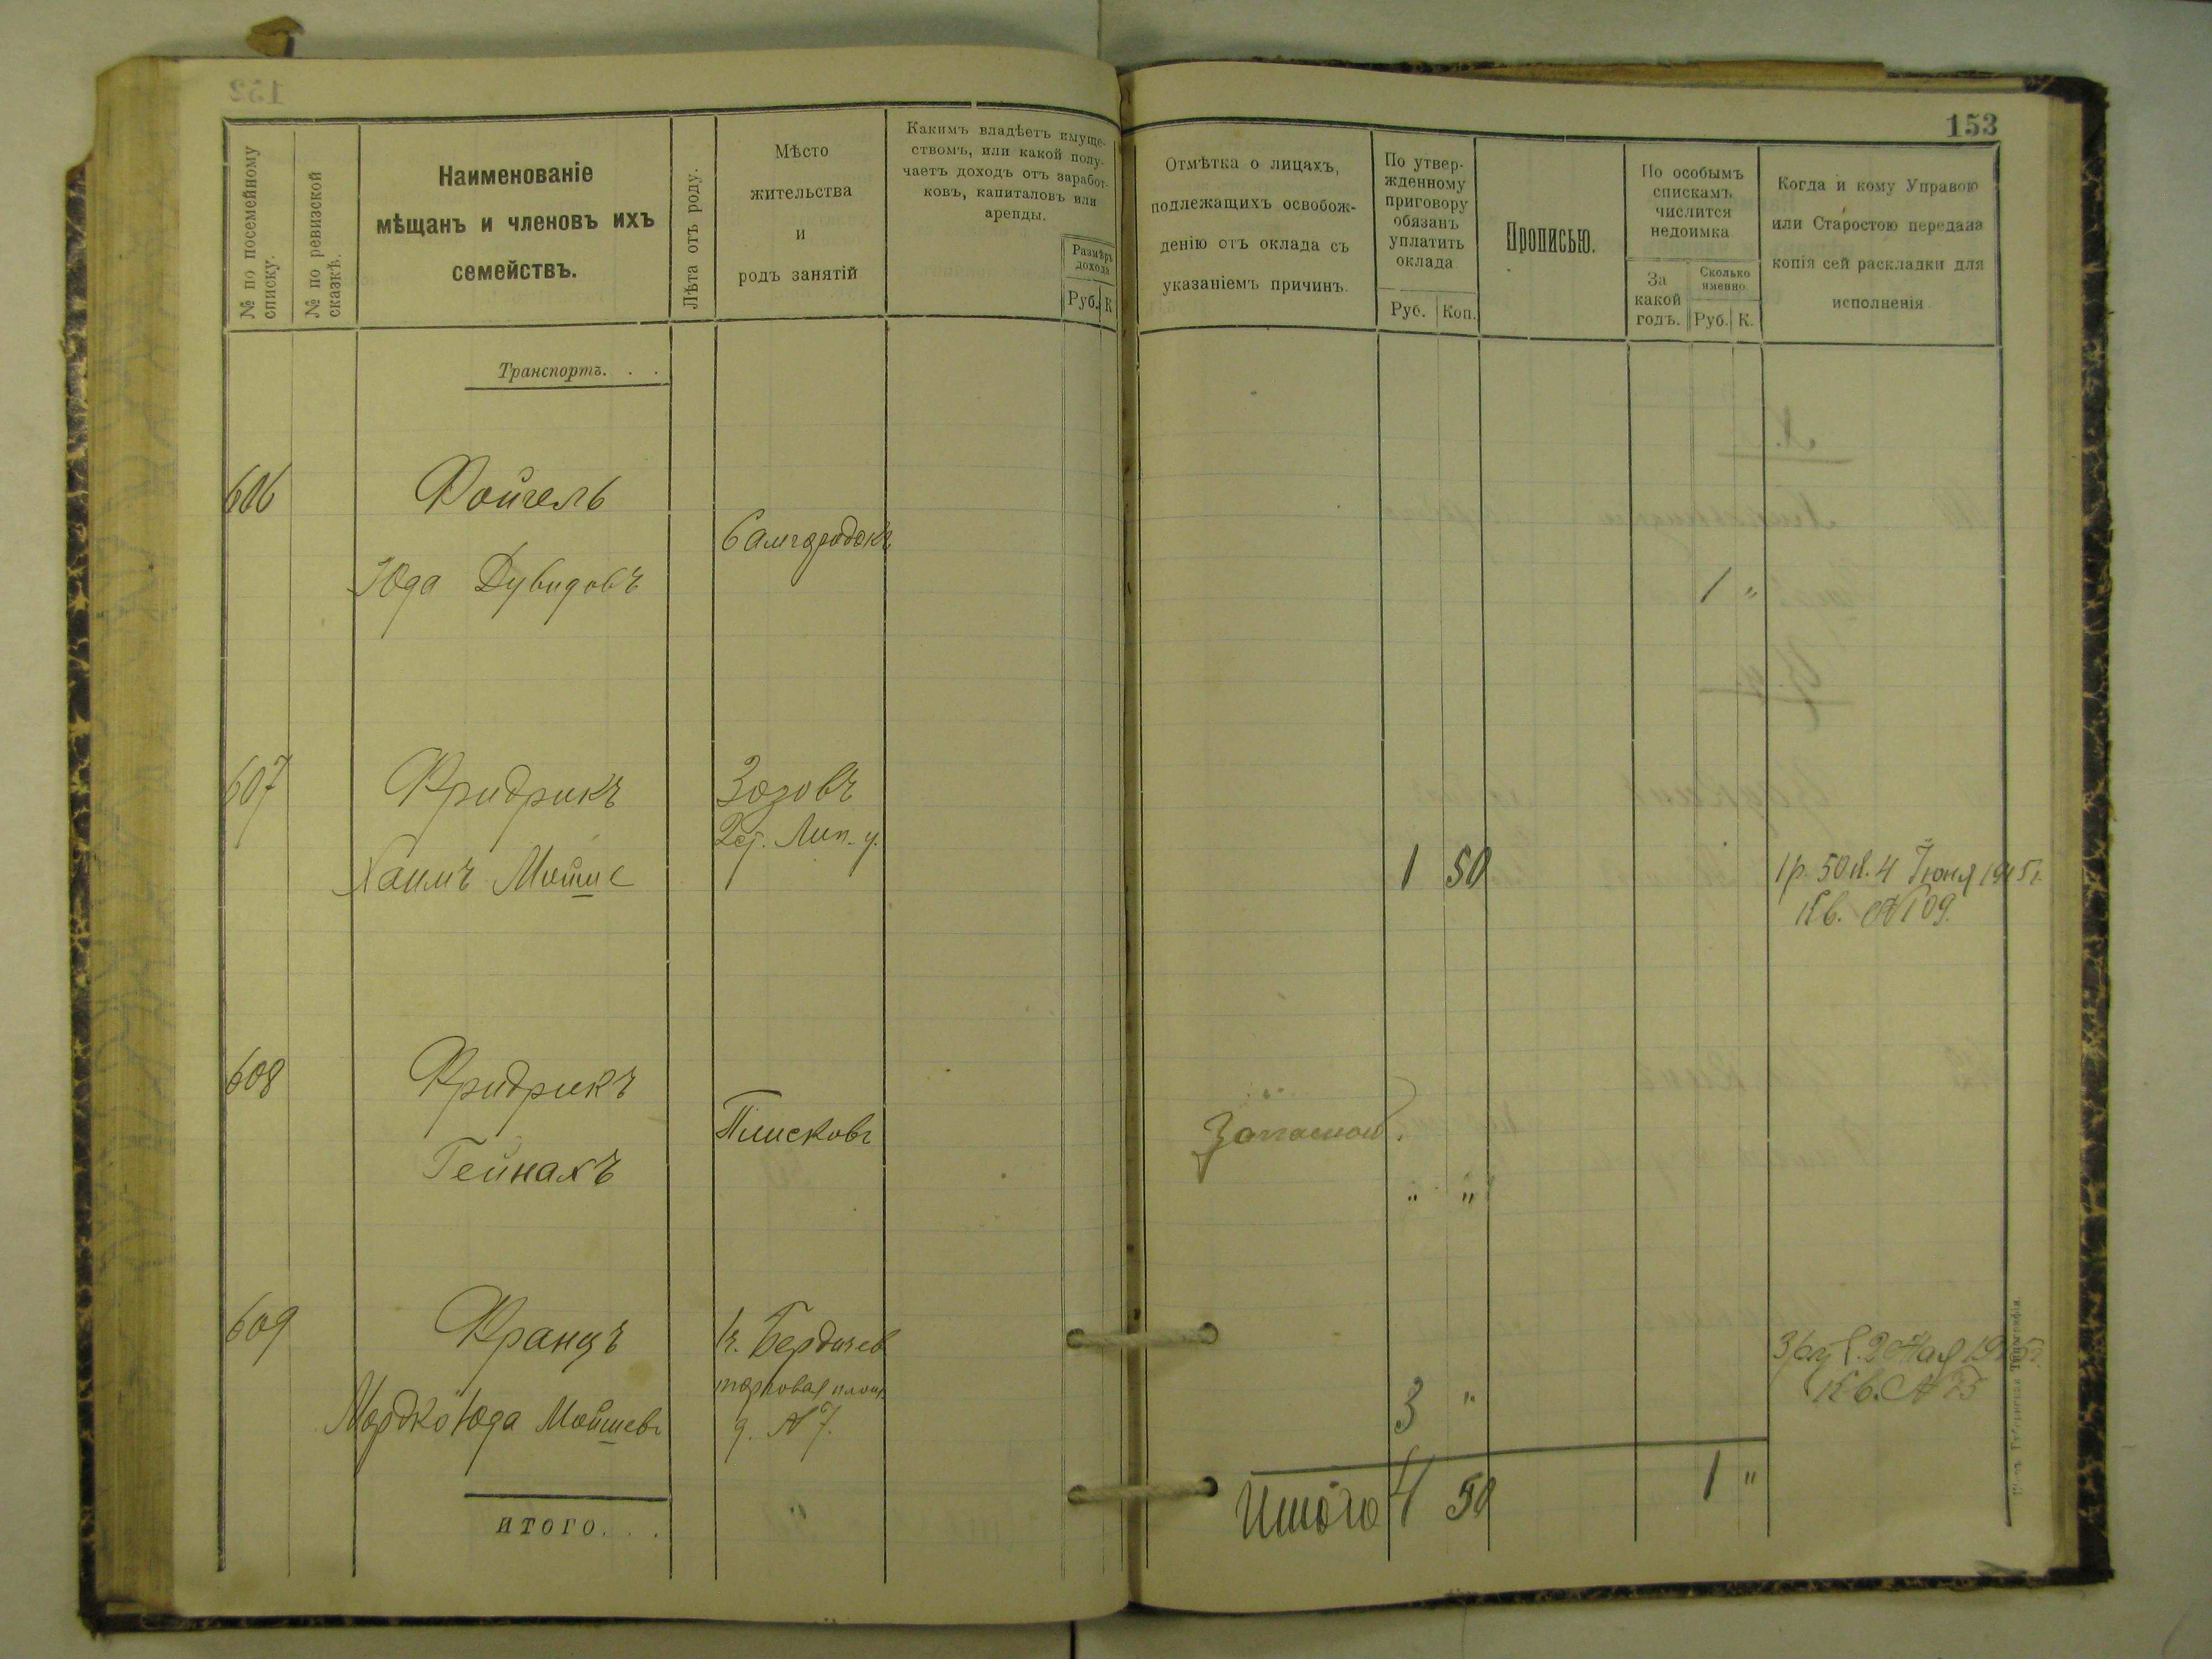 153
№ по посемейному списку.
№ по ревизской сказкѣ.
Наименованіе
мѣщанъ и членовъ ихъ
семействъ.
Лѣта отъ роду.
Мѣсто
жительства
и
родъ занятій
Какимъ владѣетъ имуще-
ствомъ, или какой полу-
чаетъ доходъ отъ заработ-
ковъ, капиталовъ или
аренды.
Размѣръ
дохода
Руб. К
Отмѣтка о лицахъ,
подлежащихъ освобож-
денію отъ оклада съ
указаніемъ причинъ.
По утвер-
жденному
приговору
обязанъ
уплатить
оклада
Руб. Коп.
Прописью.
По особымъ
спискамъ
числится
недоимка
За
какой
годъ.
Сколько
именно
Руб. К.
Когда и кому Управою
или Старостою передана
копія сей раскладки для
исполненія
Транспортъ. . .
606 Фойгель
Самгородокъ
Юда Дувидовъ 1 "
607 Фридрикъ Зозовъ
Лип. у.
Хаимъ Мойше 1 50 1 р. 50 к. 4 Іюня 1915 г.
Кв. № 109.
608 Фридрикъ
Плисковъ Запасной.
Гейнахъ " "
609 Францъ г. Бердичев
3 руб. 2 Мая
торговая площ.
Кв. № 75
Мордко Юда Мойшевъ д. № 7. 3 "
Итого 4 50 1 "
ИТОГО. . .